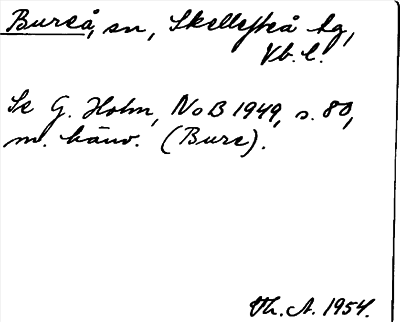 Burså, sn, Skellefteå tg,
Vb. l.
Se G. Holm, NoB 1949, s. 80,
m. hänv. (Bure).
Vh. A. 1954.